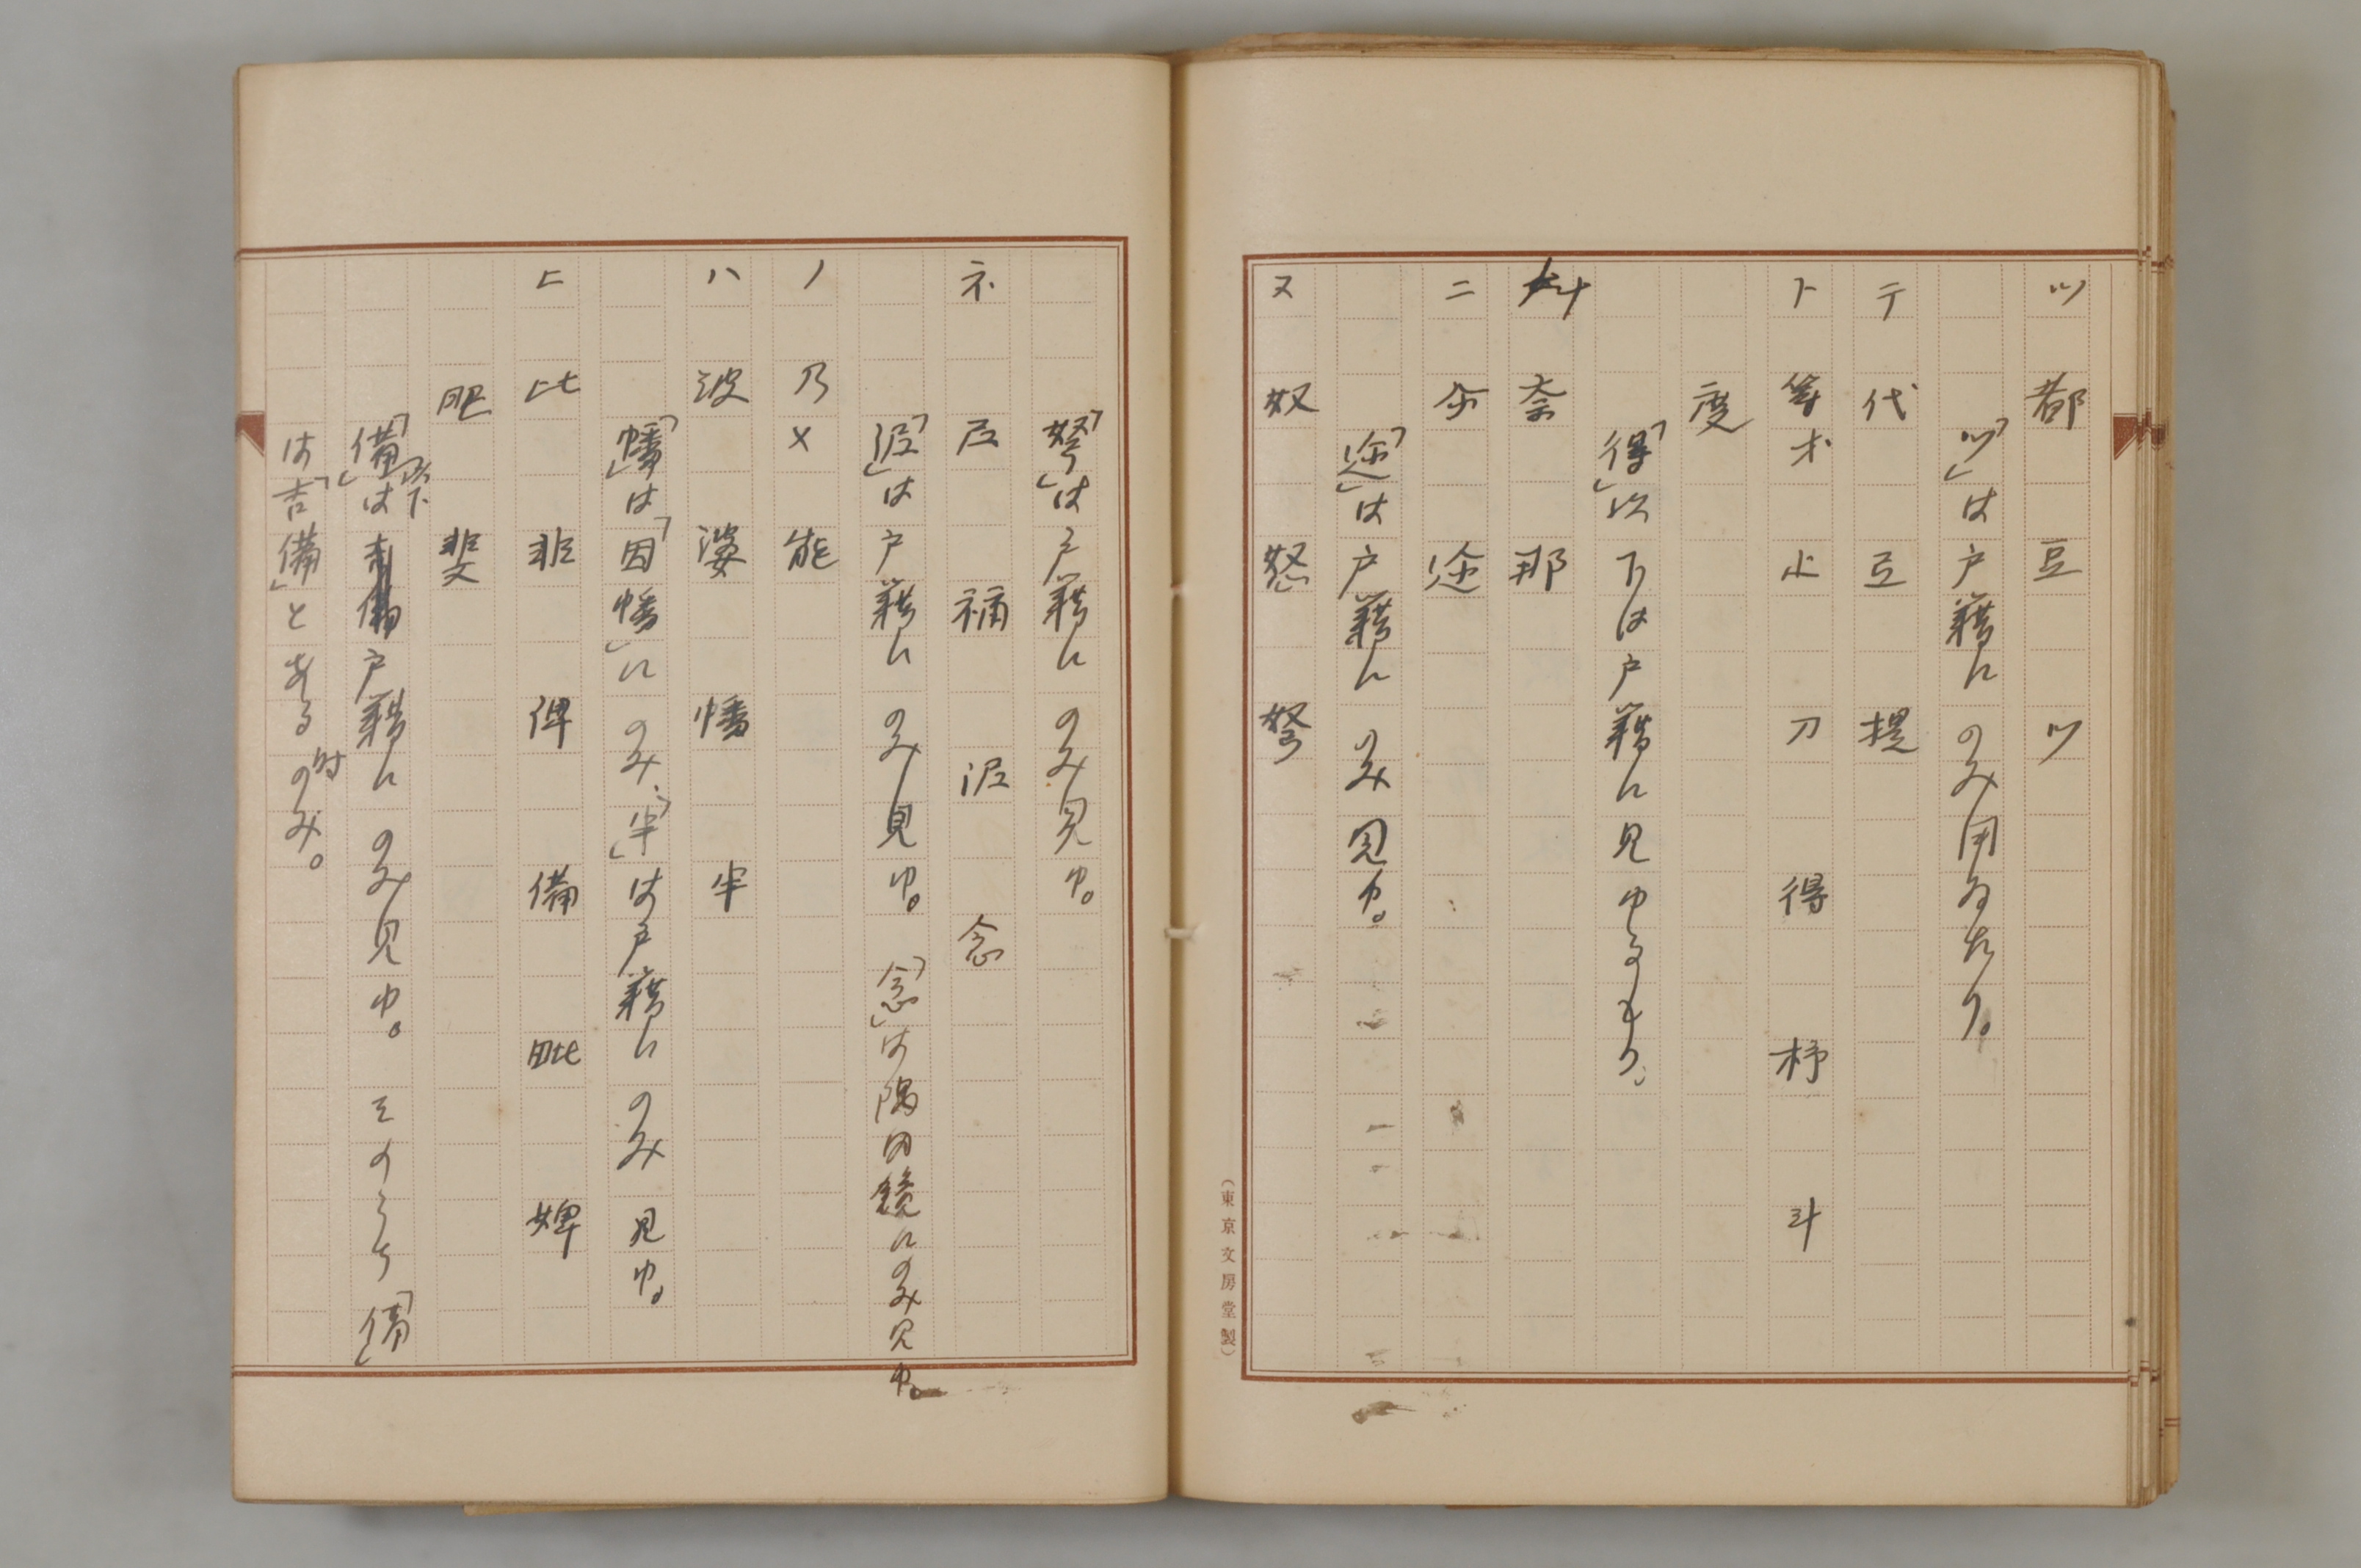 ツ 都 豆 ツ
「ツ」は戸籍にのみ用ゐたり。
テ 代 豆 提
ト 等 才 止 刀 得 杼 斗
度
「得」以下は戸籍に見ゆるもの。
ナ 奈 那
ニ 尓 迩
「迩」は戸籍にのみ見ゆ。
ヌ 奴 怒 弩
(東京文房堂製)
「弩」は戸籍にのみ見ゆ。
ネ 尼 祢 泥 念
「泥」は戸籍にのみ見ゆ。「念」は隅田鏡にのみ見ゆ。
ノ 乃 × 能
ハ 波 婆 幡 半
「幡」は「因幡」にのみ、「半」は戸籍にのみ見ゆ。
ヒ 比 非 俾 備 毗 婢
肥 斐
「備」以下は戸籍にのみ見ゆ。そのうち「備」
は「吉備」とある時のみ。